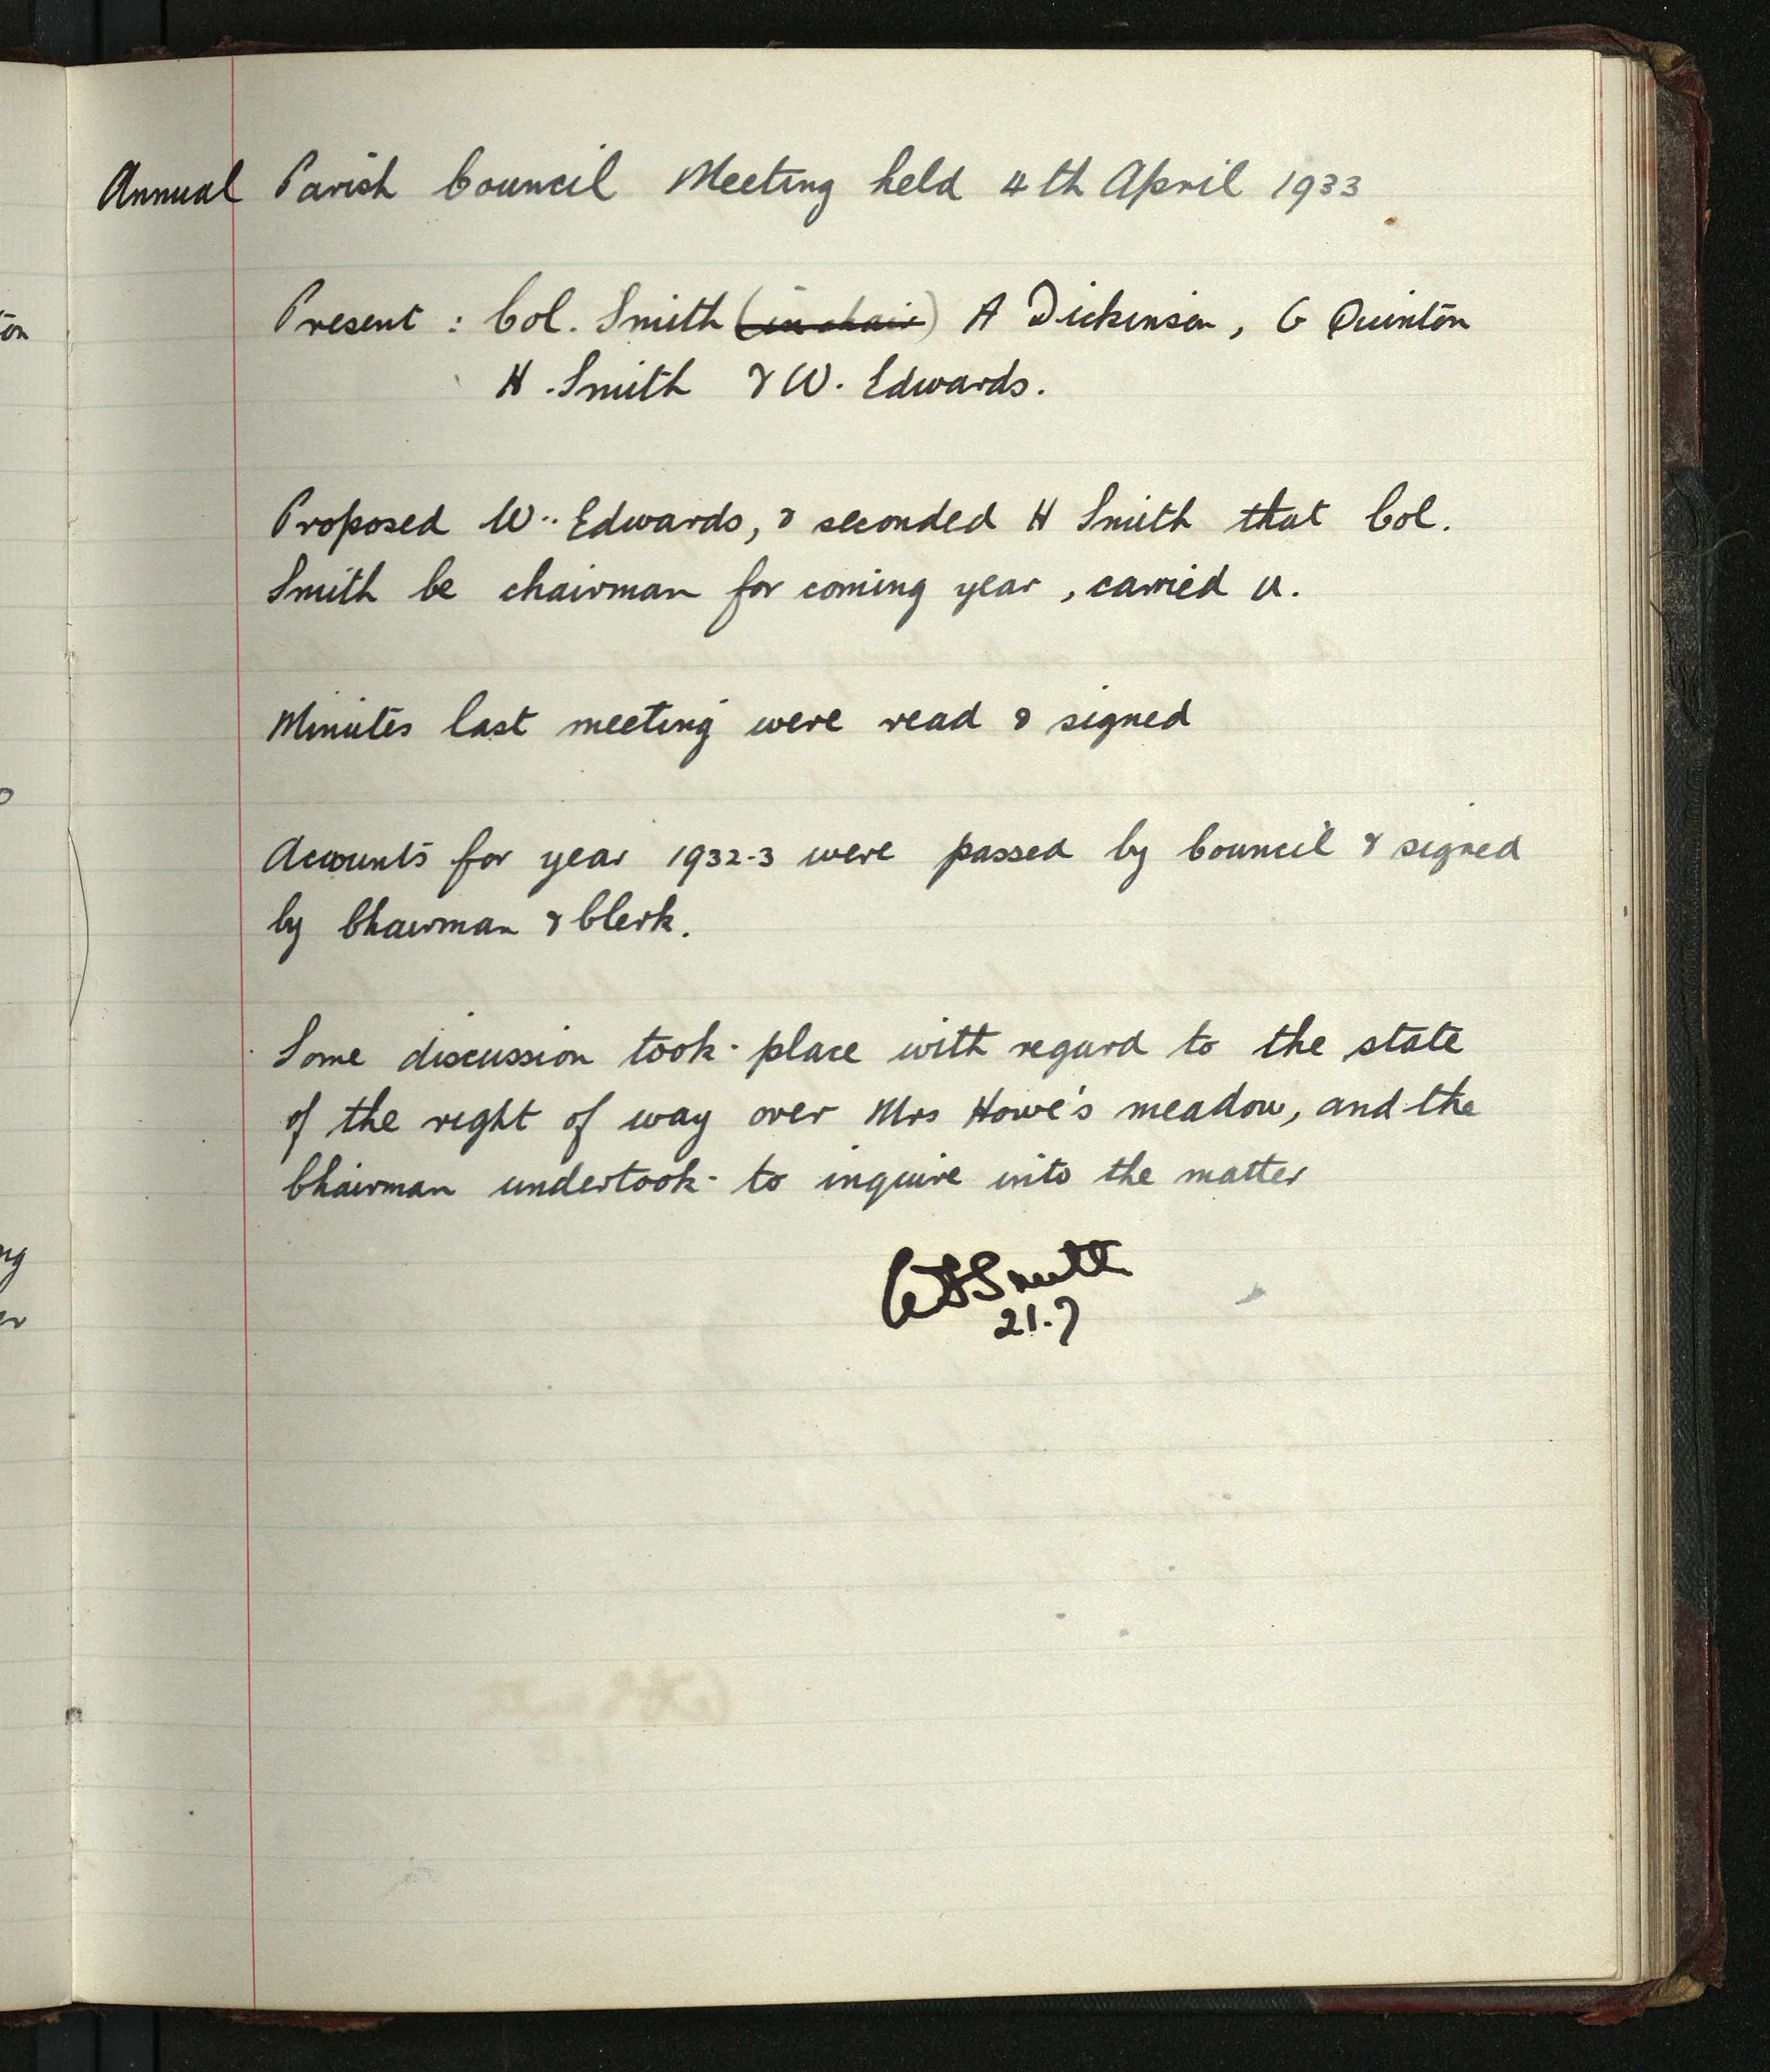 Annual Parish Council Meeting held 4th April 1933
Present : Col. Smith (in chair) A Dickinson, G Quinton
H. Smith & W. Edwards.
Proposed W. Edwards, & seconded H Smith that Col.
Smith be chairman for coming year, carried u.
Minutes last meeting were read & signed
Accounts for year 1932-3 were passed by Council & signed
by Chairman & Clerk.
Some discussion took place with regard to the state
of the right of way over Mrs Howe's meadow, and the
Chairman undertook to inquire into the matter
Smith
21.7